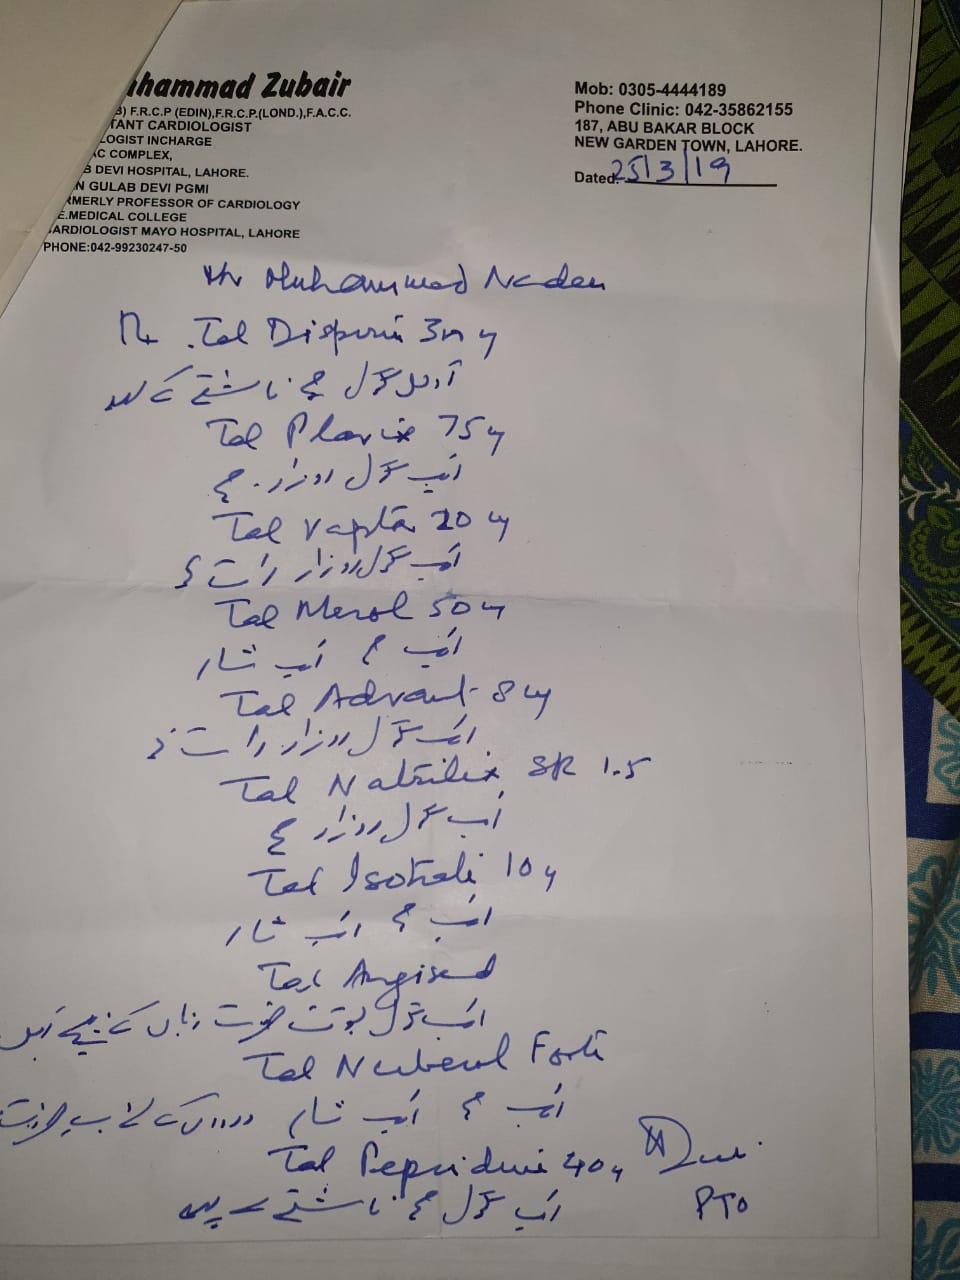 hammad Zubair
) F.R.C.P (EDIN),F.R.C.P.(LOND.),F.A.C.C.
TANT CARDIOLOGIST
LOGIST INCHARGE
AC COMPLEX,
B DEVI HOSPITAL, LAHORE.
N GULAB DEVI PGMI
RMERLY PROFESSOR OF CARDIOLOGY
E.MEDICAL COLLEGE
ARDIOLOGIST MAYO HOSPITAL, LAHORE
PHONE:042-99230247-50
Mob: 0305-4444189
Phone Clinic: 042-35862155
187, ABU BAKAR BLOCK
NEW GARDEN TOWN, LAHORE.
Dated: 25/3/19
Mr Muhammad
Tab Disprin
ناشتے کے بعد
Tab Plavix 75
ایک گولی روزانہ صبح
Tab 20
ایک گولی روزانہ رات
Tab Merol 50
ایک صبح ایک شام
Tab Advant 8
ایک گولی روزانہ رات
Tab Natrilix SR 1.5
ایک گولی روزانہ صبح
Tab 10
ایک صبح ایک شام
Tab Angised
ایک گولی بوقت ضرورت زبان کے نیچے
Tab Nuberol Forte
ایک صبح ایک شام
Tab 40
ایک گولی صبح ناشتے سے پہلے
PTO